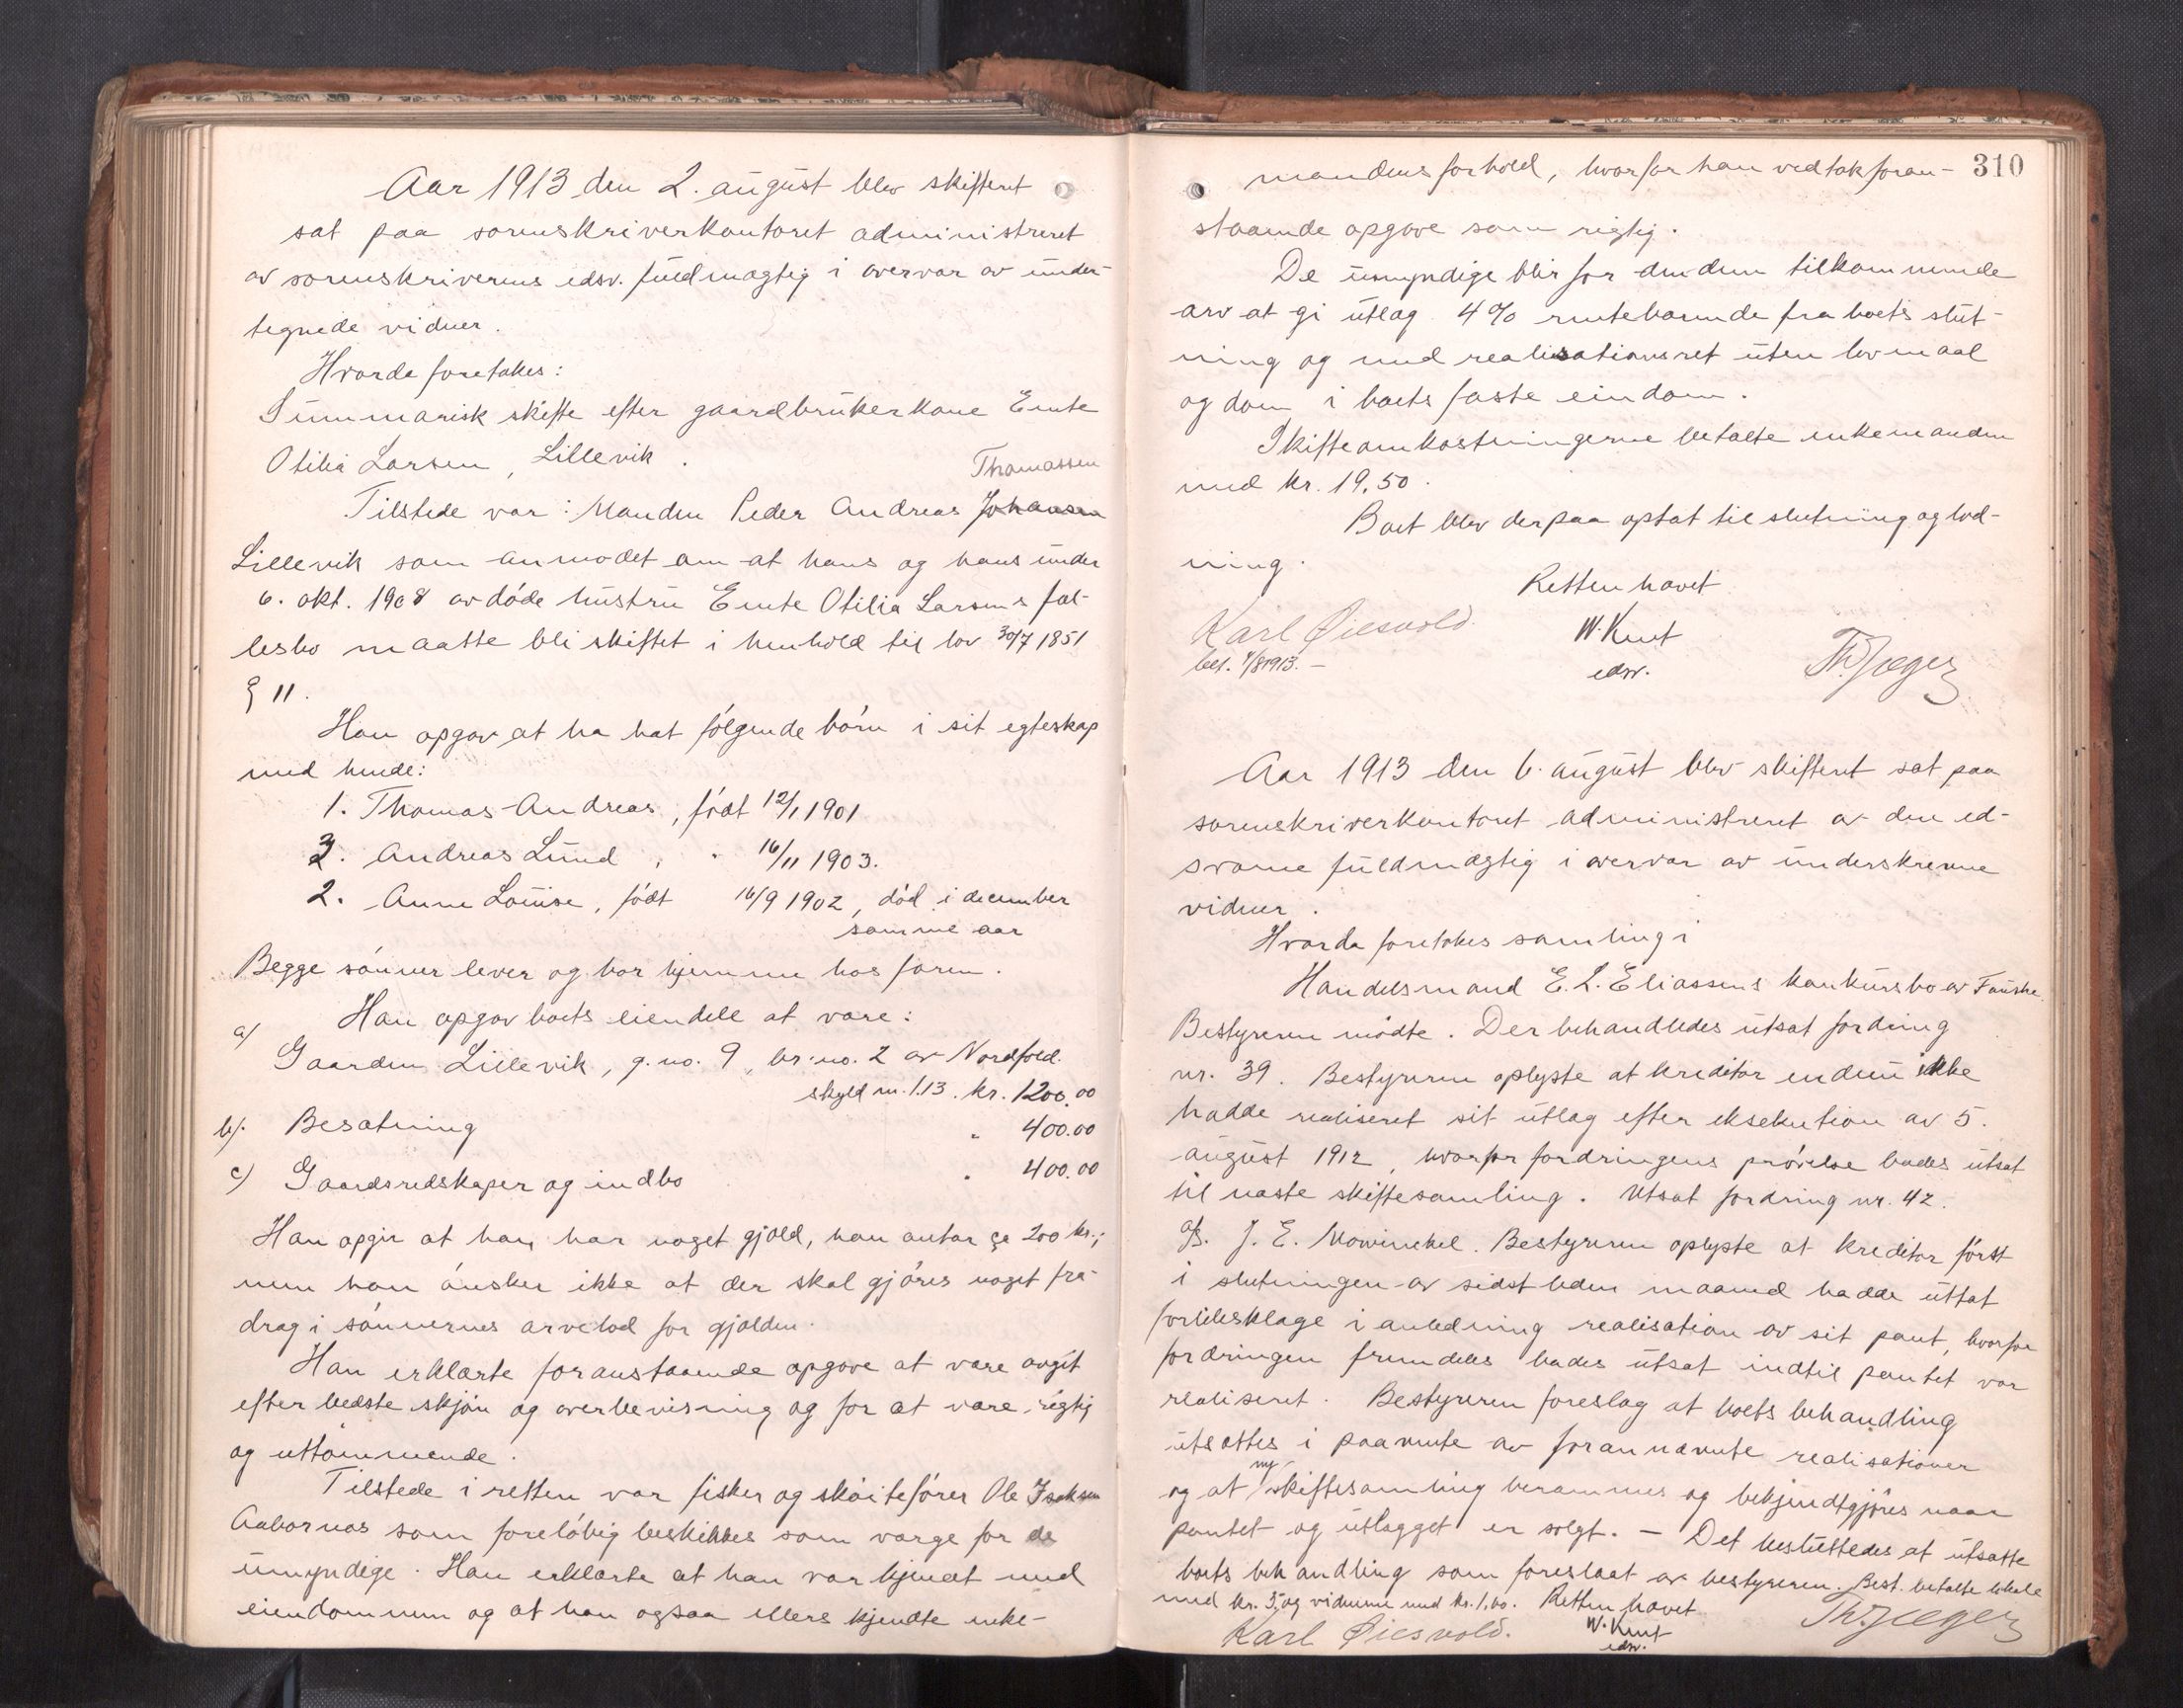 Aar 1913 den 2. august blev skifteret
sat paa sorenskriverkontoret administreret
av sorenskriverens edsv. fuldmægtig i overvær av under-
tegnede vidner.
Hvorda foretokes:
Summarisk skifte efter gaardbrukerkone Emte
Otilia Larsen, Lillevik.
Thomassen
Tilstede var: Manden Peder Andreas Johansen
Lillevik som anmodet om at hans og hans under
6. okt. 1908 avdöde hustru Emte Otilia Larsens fæl-
lesbo maatte bli skiftet i henhold til lov 30/7 1851
§ 11.
Han opgav at ha hat følgende börn i sit egteskap
med hende:
1. Thomas Andreas, födt 12/1 1901
3. Andreas Lund, " 16/11 1903.
2. Anne Louise, födt 16/9 1902, död i december
samme aar
Begge sönner lever og bor hjemme hos faren.
Han opgav boets eiendele at være:
a) Gaarden Lillevik, g. no. 9, br. no. 2 av Nordfold.
skyld m. 1.13. kr. 1200.00
b). Besætning " 400.00
c) Gaardsredskaper og indbo " 400.00
Han opgir at han har noget gjæld, han antar ca 200 kr.;
men han önsker ikke at der skal gjöres noget fra-
drag i sönnernes arvelod for gjælden.
Han erklærte foranstaaende opgave at være avgit
efter bedste skjön og overbevisning og for at være rigtig
og uttömmende.
Tilstede i retten var fisker og sköiteförer Ole Isaksen
Aabornæs som forelöbig beskikkes som værge for de
umyndige. Han erklærte at han var kjendt med
eiendommen og at han ogsaa ellers kjendte enke-
310
mandens forhold, hvorfor han vedtok foran-
staaende opgave som rigtig.
De umyndige blir for den dem tilkommende
arv at gi utlæg 4 % rentebærende fra boets slut-
ning og med realisationsret uten lovmaal
og dom i boets faste eiendom.
Skifteomkostningerne betalte enkemanden
med kr. 19.50.
Boet blev derpaa optat til slutning og lod-
ning.
Retten hævet
Karl Øiesvold. W. Knut Th. Jæger
bet. 4/8 1913. — edsv.
Aar 1913 den 6. august blev skifteret sat paa
sorenskriverkontoret administreret av den ed-
svorne fuldmægtig i overvær av underskrevne
vidner.
Hvorda foretokes samling i
Handelsmand E. L. Eliassens konkursbo av Fauske.
Bestyreren mödte. Der behandledes utsat fordring
nr. 39. Bestyreren oplyste at kreditor endnu ikke
hadde realiseret sit utlæg efter eksekution av 5.
august 1912, hvorfor fordringens prövelse bades utsat
til næste skiftesamling. Utsat fordring nr. 42.
A/S. J. E. Mowinckel. Bestyreren oplyste at kreditor först
i slutningen av sidst leden maaned hadde uttat
forliksklage i anledning realisation av sit pant, hvorfor
fordringen fremdeles bades utsat indtil pantet var
realiseret. Bestyreren foreslog at boets behandling
utsattes i paavente av forannævnte realisationer
og at ny skiftesamling berammes og bekjendtgjöres naar
pantet og utlægget er solgt. — Det besluttedes at utsætte
boets behandling som foreslaat av bestyreren. Best. betalte lokale
med kr. 5, og vidnerne med kr. 1,60. Retten hævet
Karl Øiesvold. W. Knut Th. Jæger
edsv.